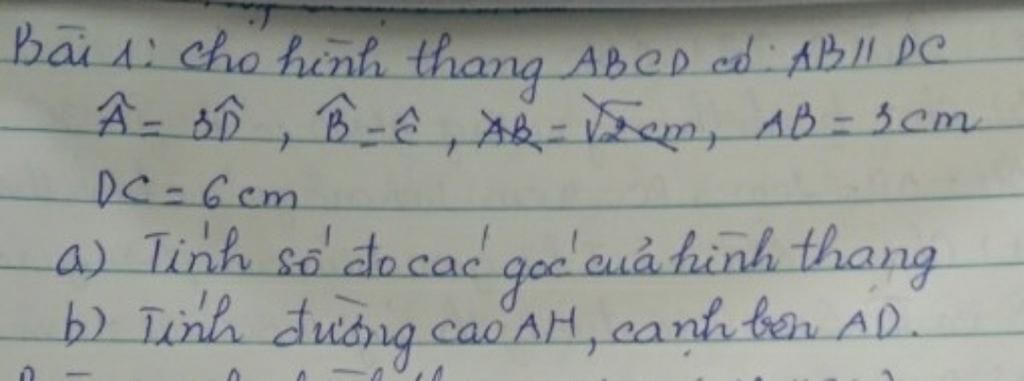 Bài 1: Cho hình thang ABCD có: AB // DC
Â = 3D̂, B̂ = Ĉ, AB = √2 cm, AB = 3 cm
DC = 6 cm
a) Tính số đo các góc của hình thang
b) Tính đường cao AH, cạnh bên AD.